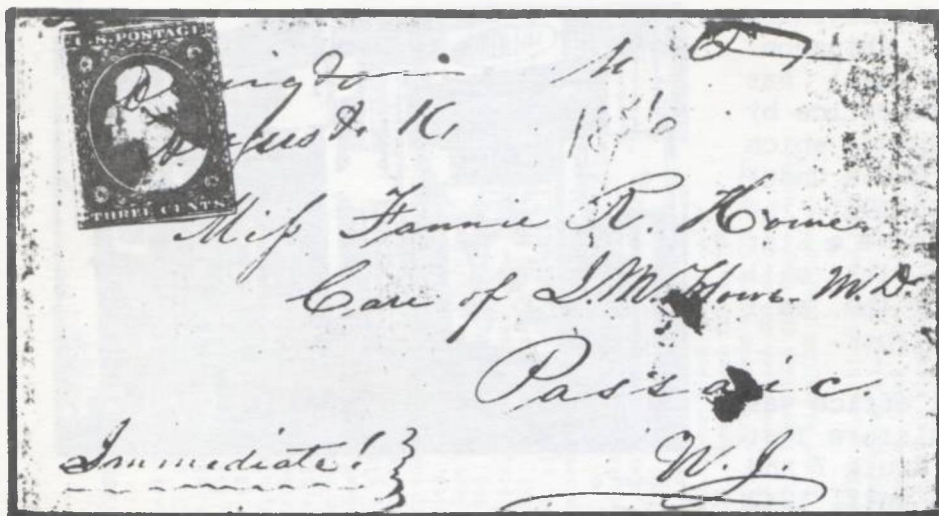 U.S. POSTAGE
THREE CENTS
August
Miss Fannie R. Howe.
Care of J. M. Howe. M.D.
Passaic.
N. J.
Immediate!